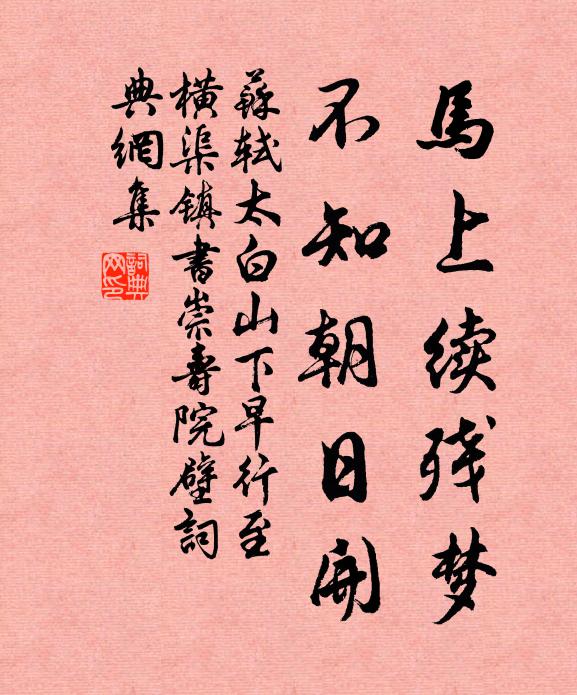 馬上续残梦
不知朝日開
蘇軾太白山下早行至
横渠鎮書崇壽院壁詞
典網集
詞典
网印